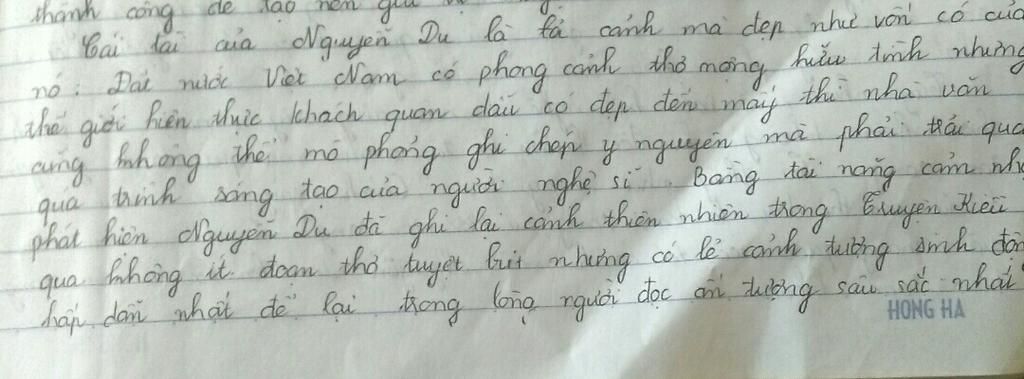 thành công để tạo nên giá
Cái tài của Nguyễn Du là tả cảnh mà đẹp như vốn có của
nó. Đất nước Việt Nam có phong cảnh thơ mộng hữu tình nhưng
thế giới hiện thực khách quan dẫu có đẹp đến mấy thì nhà văn
cũng không thể mô phỏng ghi chép y nguyên mà phải trải qua
quá trình sáng tạo của người nghệ sĩ. Bằng tài năng cảm nh
phát hiện Nguyễn Du đã ghi lại cảnh thiên nhiên trong Truyện Kiều
qua không ít đoạn thơ tuyệt bút nhưng có lẽ cảnh tượng sinh độn
hấp dẫn nhất để lại trong lòng người đọc ấn tượng sâu sắc nhất
HONG HA